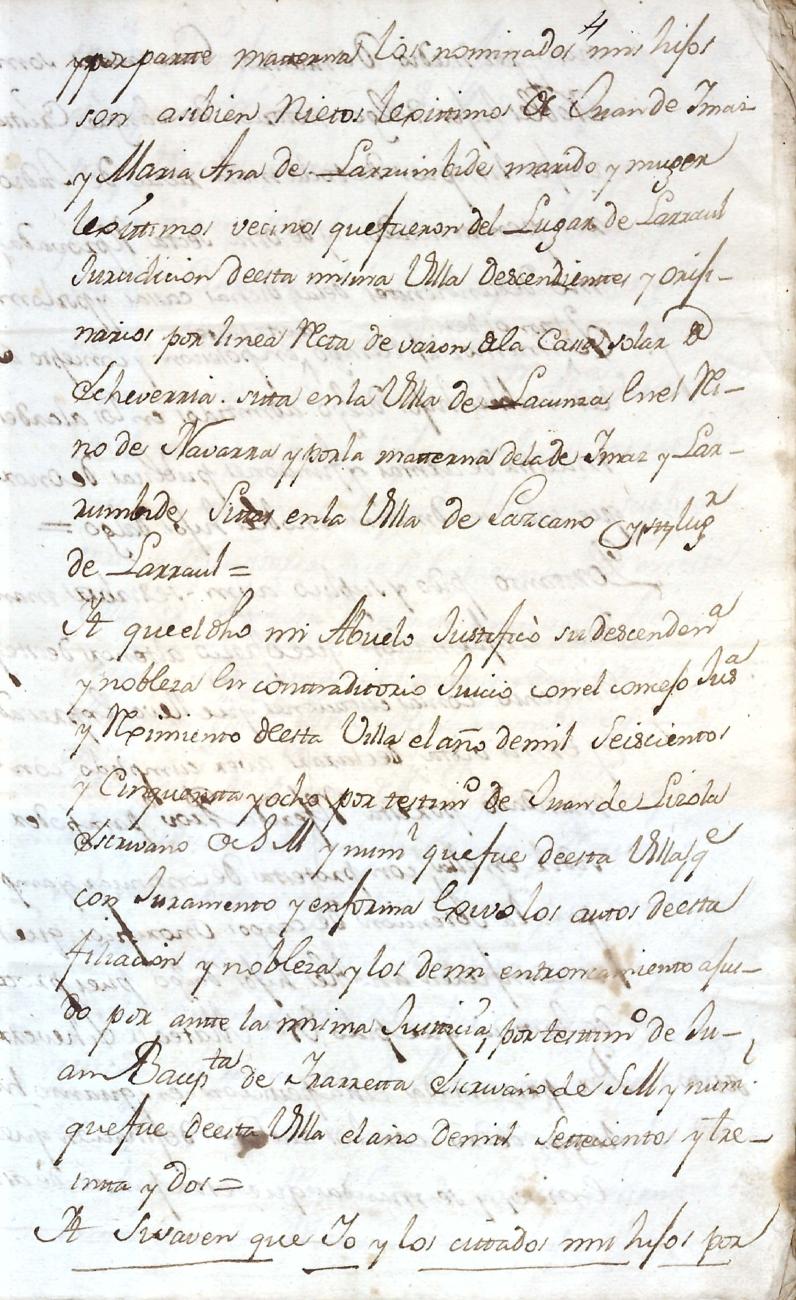 4
y por partte matterna los nominados mis hijos
son asibien Nietos lexittimos de Juan de Imaz
y Maria Ana de Larrumbide marido y muger
lexittimos vecinos que fueron del Lugar de Larraul
Jurisdicion deesta misma Villa descendienttes y orixi-
narios por linea Recta de varon dela Cassa solar de
Echeverria sitta en la Villa de Lacunza en el Rei-
no de Navarra y por la matterna dela de Imaz y Lar-
rumbide Sittas en la Villa de Lazcano y lugr
de Larraul =
Itt que el dho mi Abuelo Justificò su descendena
y nobleza en conttraditorio Juicio con el concejo Jusa
y Reximiento deesta Villa el año de mil Seiscientos
y Cinquentta y ocho por testimo de Juan de Lizola
Escrivano de S M y numl que fue deesta Villa qe
con Juramento y en forma Exivo los autos deesta
filiacion y nobleza y los de mi entroncamiento a jus-
do por antte la misma Justicia, por testtimo de Ju-
an Baupta de Izarretta Escrivano de S M y numl
que fue deesta Villa el año de mil Settecientos y tre-
intta y dos =
Itt Si saven que Yo y los cittados mis hijos por